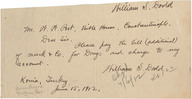 William S. Dodd
Mr. W. W. Peet, Bible House, Constantinople.
Dear Sir:
Please pay the bill (additional)
of
& Co., for Drugs, and charge to my
account.
William S. Dodd
Konia, Turkey
June 15, 1912.